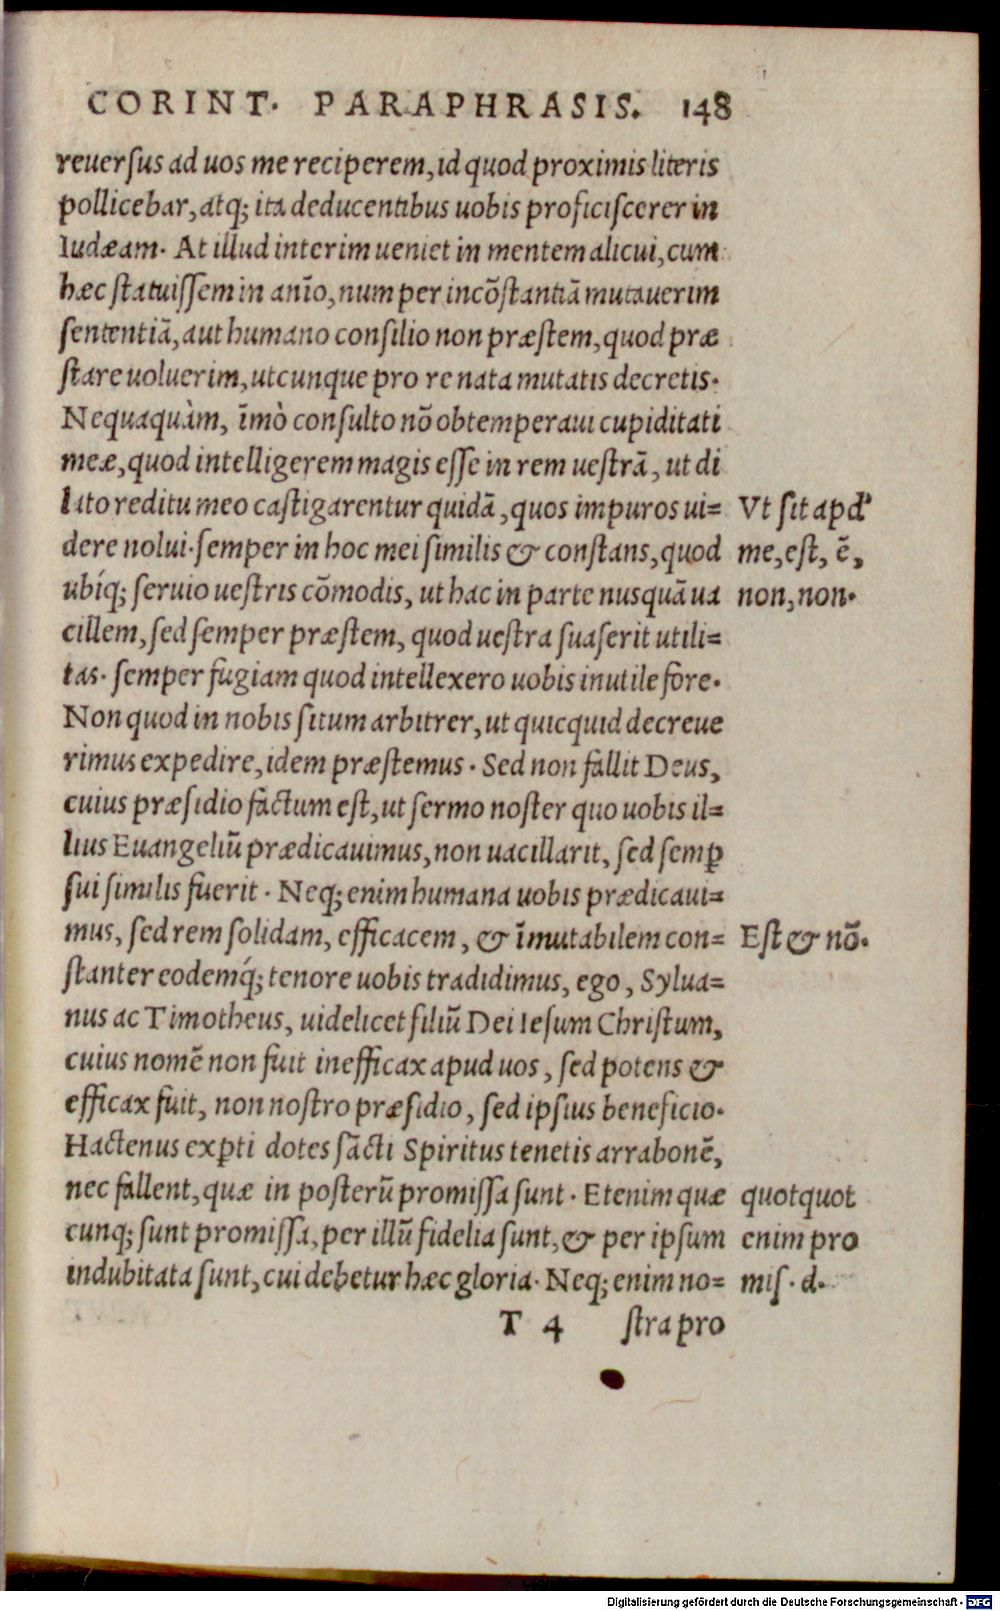 CORINT. PARAPHRASIS. 148
reuersus ad uos me reciperem, id quod proximis literis
pollicebar, atq; ita deducentibus uobis proficiscerer in
Iudæam. At illud interim ueniet in mentem alicui, cum
hæc statuissem in anĩo, num per incõstantiã mutauerim
sententiã, aut humano consilio non præstem, quod præ
stare uoluerim, utcunque pro re nata mutatis decretis.
Nequaquàm, ĩmò consulto nõ obtemperaui cupiditati
meæ, quod intelligerem magis esse in rem uestrã, ut di
lato reditu meo castigarentur quidã, quos impuros ui=
Vt sit apd'
dere nolui. semper in hoc mei similis & constans, quod
me, est, ẽ,
ubíq; seruio uestris cõmodis, ut hac in parte nusquã ua
non, non.
cillem, sed semper præstem, quod uestra suaserit utili=
tas. semper fugiam quod intellexero uobis inutile fore.
Non quod in nobis situm arbitrer, ut quicquid decreue
rimus expedire, idem præstemus. Sed non fallit Deus,
cuius præsidio factum est, ut sermo noster quo uobis il=
lius Euangeliũ prædicauimus, non uacillarit, sed semꝑ
sui similis fuerit. Neq; enim humana uobis prædicaui=
mus, sed rem solidam, efficacem, & ĩmutabilem con=
Est & nõ.
stanter eodemq́; tenore uobis tradidimus, ego, Sylua=
nus ac Timotheus, uidelicet filiũ Dei Iesum Christum,
cuius nomẽ non fuit inefficax apud uos, sed potens &
efficax fuit, non nostro præsidio, sed ipsius beneficio.
Hactenus exꝑti dotes sãcti Spiritus tenetis arrabonẽ,
nec fallent, quæ in posterũ promissa sunt. Etenim quæ
quotquot
cunq; sunt promissa, per illũ fidelia sunt, & per ipsum
enim pro
indubitata sunt, cui debetur hæc gloria. Neq; enim no=
mis. d.
T 4 stra pro
Digitalisierung gefördert durch die Deutsche Forschungsgemeinschaft - DFG